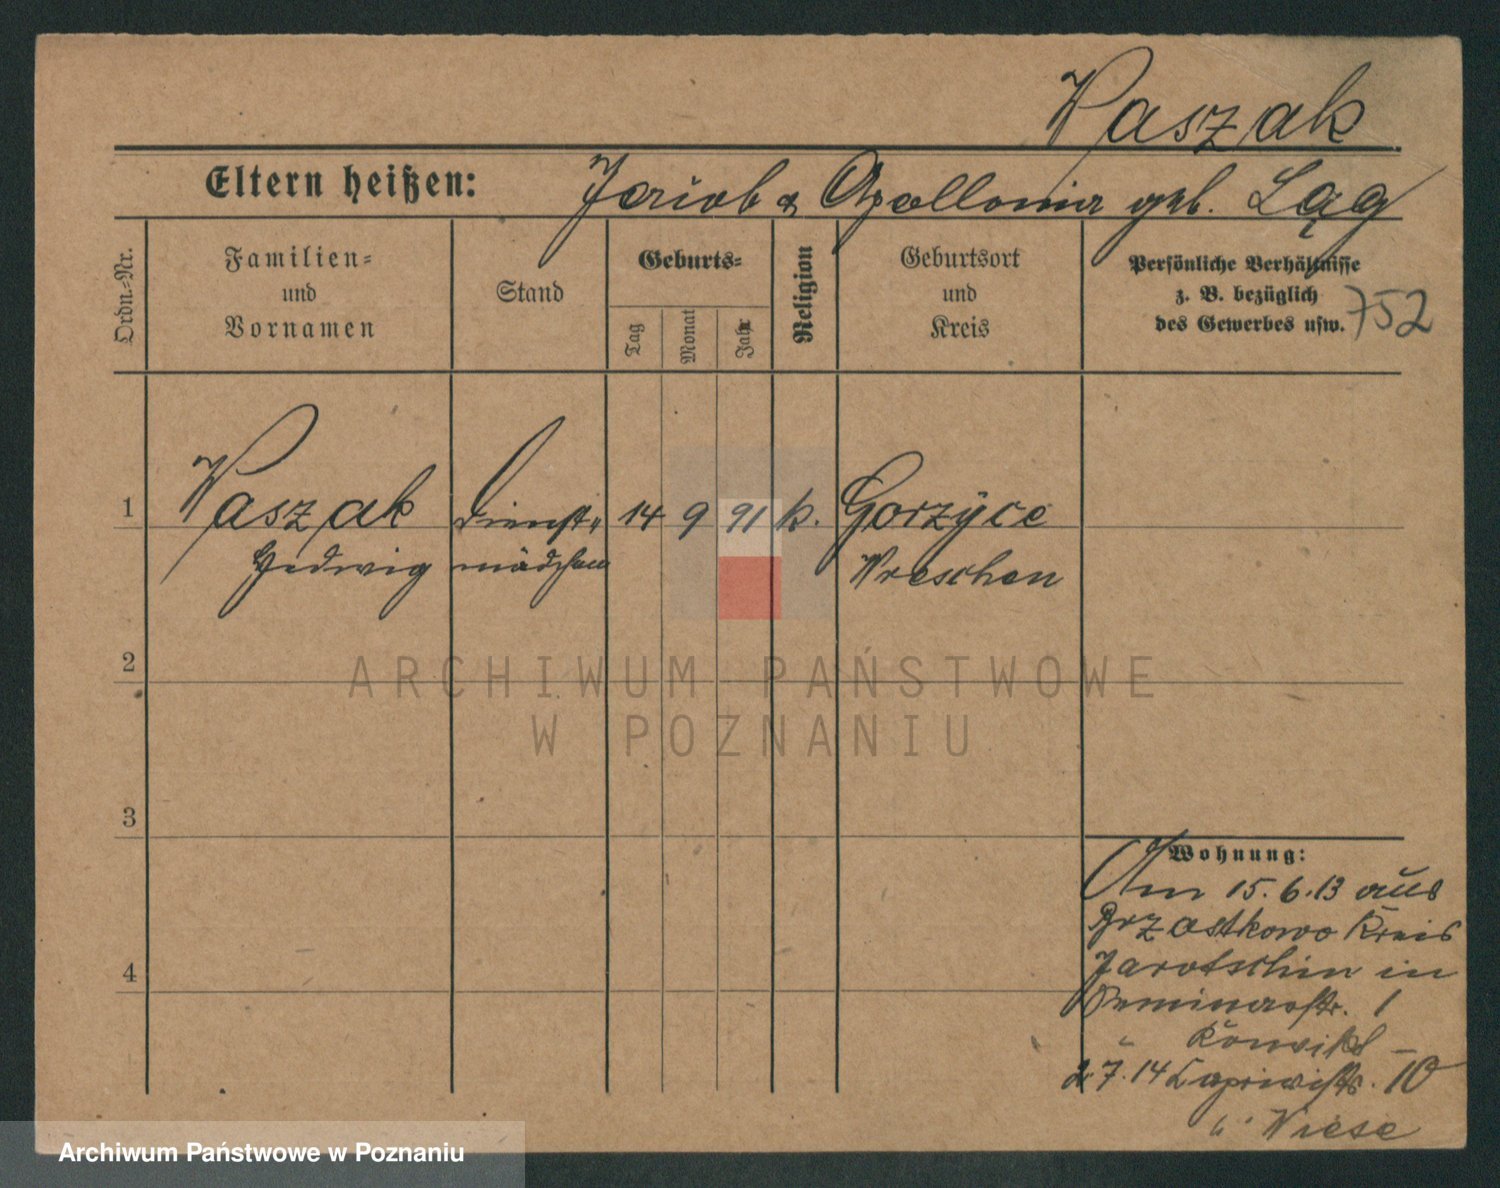 Waszak
Eltern heißen: Jakob & Apollonia geb. Ląg
Ordn.-Nr.
Familien-
und
Vornamen
Stand
Geburts-
Tag
Monat
Jahr
Religion
Geburtsort
und
Kreis
Persönliche Verhältnisse
z. B. bezüglich
des Gewerbes usw.
752
1 Waszak Dienst- 14 9 91 k. Gorzyce
Hedwig mädchen Wreschen
2
ARCHIWUM PAŃSTWOWE
W POZNANIU
3
Wohnung:
Am 15.6.13 aus
Brzostkowo Kreis
Jarotschin in
Seminarstr. 1
Konvikt
2.7.14 10
b. Wiese
4
Archiwum Państwowe w Poznaniu